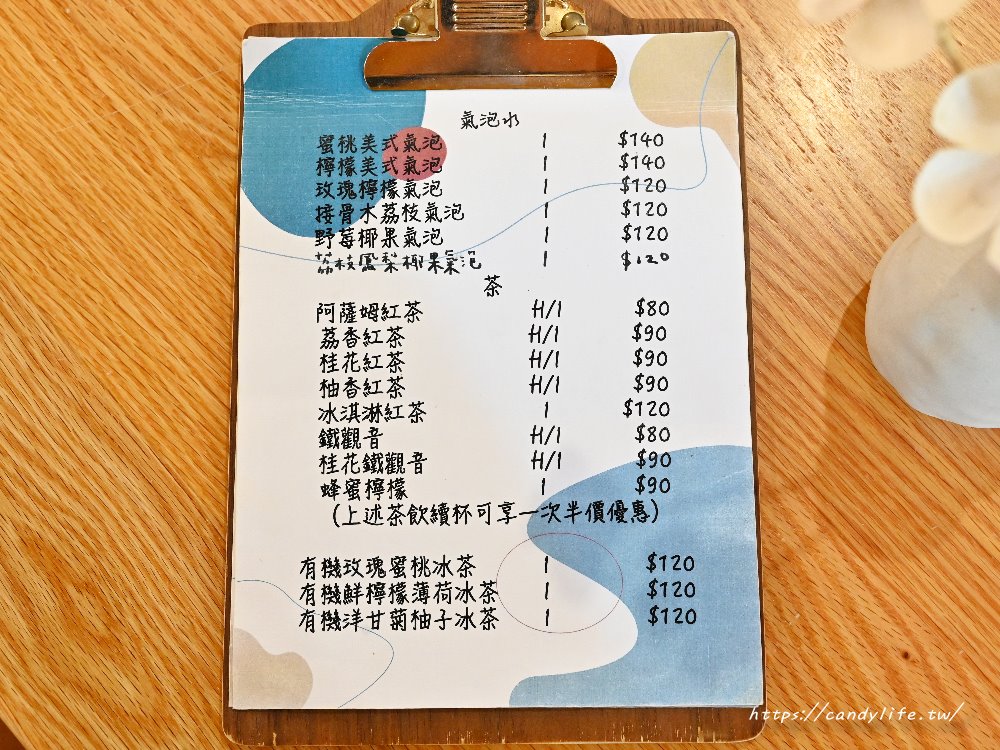 氣泡水
蜜桃美式氣泡 I $140
檸檬美式氣泡 I $140
玫瑰檸檬氣泡 I $120
接骨木荔枝氣泡 I $120
野莓椰果氣泡 I $120
荔枝鳳梨椰果氣泡 I $120
茶
阿薩姆紅茶 H/I $80
荔香紅茶 H/I $90
桂花紅茶 H/I $90
柚香紅茶 H/I $90
冰淇淋紅茶 I $120
鐵觀音 H/I $80
桂花鐵觀音 H/I $90
蜂蜜檸檬 I $90
(上述茶飲續杯可享一次半價優惠)
有機玫瑰蜜桃冰茶 I $120
有機鮮檸檬薄荷冰茶 I $120
有機洋甘菊柚子冰茶 I $120
https://candylife.tw/